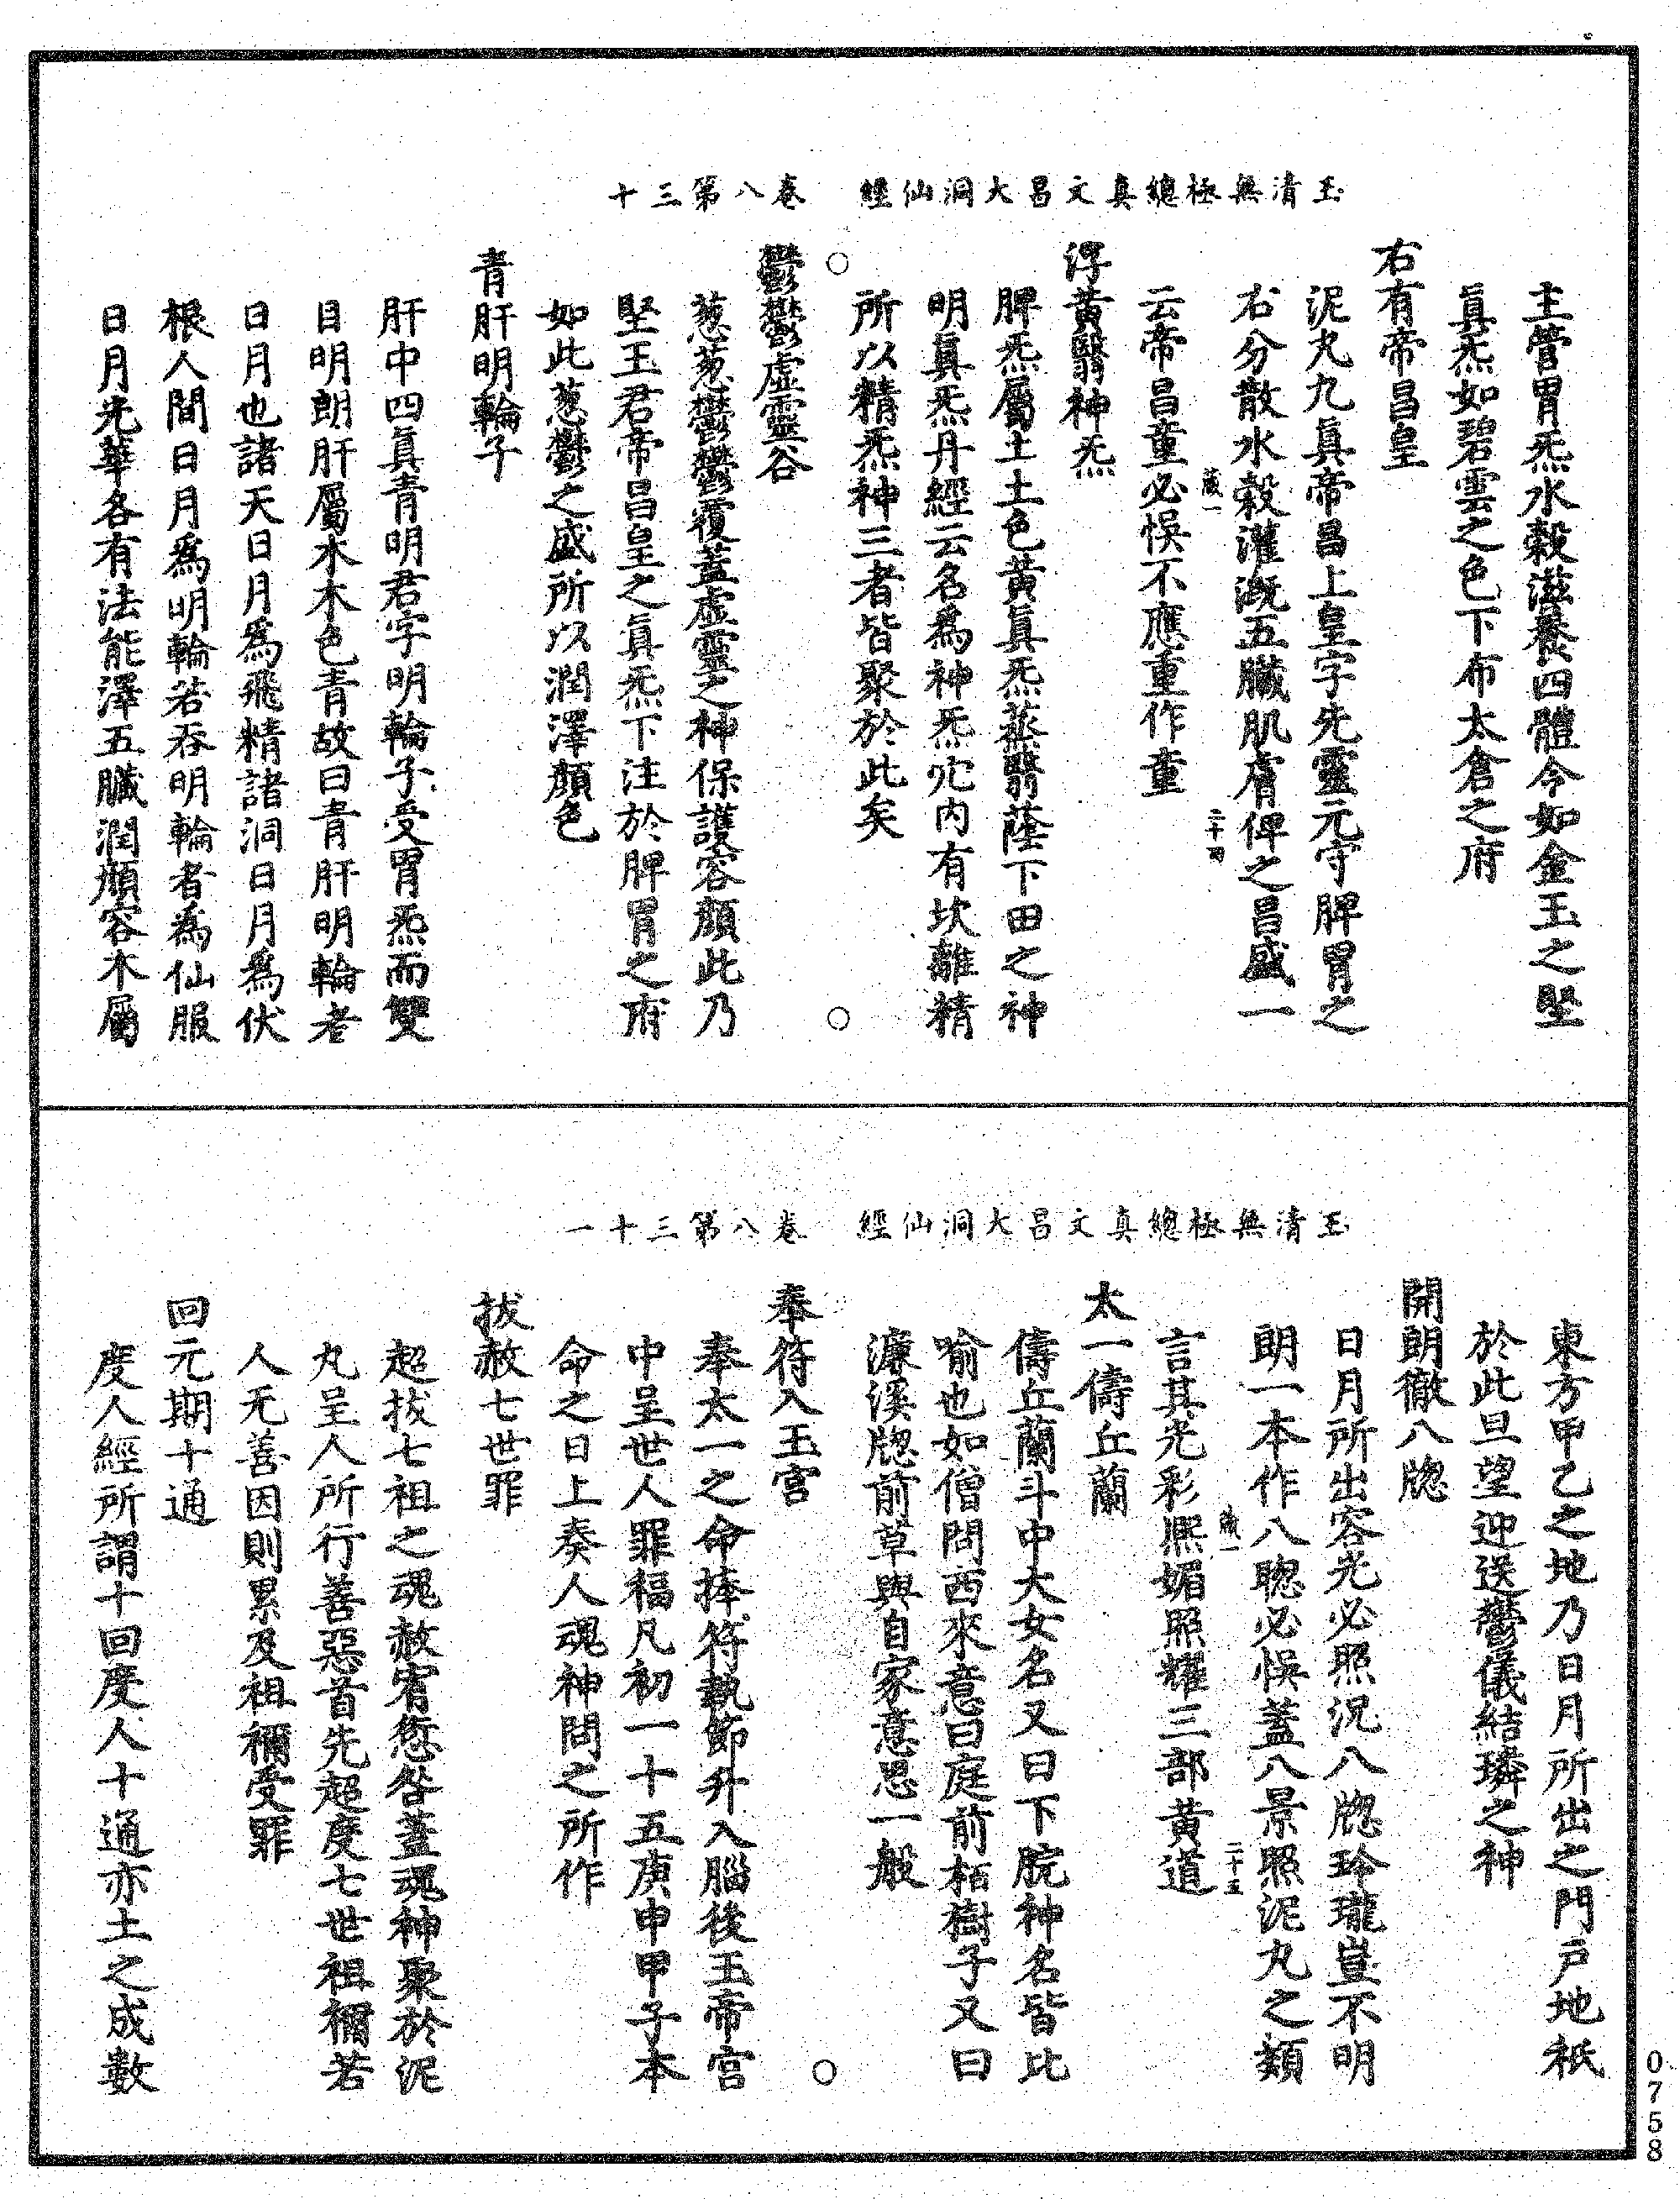 玉清無極總真文昌大洞仙經　卷八第三十
主管胃炁水穀滋養四體今如金玉之堅
真炁如碧雲之色下布太倉之府
右有帝昌皇
泥丸九真帝昌上皇字先靈元守脾胃之
右分散水穀灌溉五臟肌膚俾之昌盛一
藏一　二十四
云帝昌童必悞不應重作童
浮黃翳神炁
脾炁屬土土色黃真炁蒸翳蔭下田之神
明真炁丹經云名為神炁穴內有坎離精
所以精炁神三者皆聚於此矣
鬱鬱虛靈谷
葱葱鬱鬱覆蓋虛靈之神保護容顏此乃
堅玉君帝昌皇之真炁下注於脾胃之府
如此葱鬱之盛所以潤澤顏色
青肝明輪子
肝中四真青明君字明輪子受胃炁而雙
目明朗肝屬木木色青故曰青肝明輪者
日月也諸天日月為飛精諸洞日月為伏
根人間日月為明輪若吞明輪者為仙服
日月光華各有法能澤五臟潤顏容木屬
玉清無極總真文昌大洞仙經　卷八第三十一
東方甲乙之地乃日月所出之門戶地祇
於此旦望迎送鬱儀結璘之神
開朗徹八牎
日月所出容光必照況八牎玲瓏豈不明
朗一本作八聰必悞蓋八景照泥丸之類
藏一　二十五
言其光彩熈媚照耀三部黃道
太一儔丘蘭
儔丘蘭斗中大女名又曰下脘神名皆比
喻也如僧問西來意曰庭前栢樹子又曰
濂溪牎前草與自家意思一般
奉符入玉宮
奉太一之命捧符執節升入腦後玉帝宮
中呈世人罪福凡初一十五庚申甲子本
命之日上奏人魂神問之所作
拔赦七世罪
超拔七祖之魂赦宥愆咎蓋魂神聚於泥
丸呈人所行善惡首先超度七世祖禰若
人无善因則累及祖禰受罪
回元期十通
度人經所謂十回度人十通亦土之成數
0758